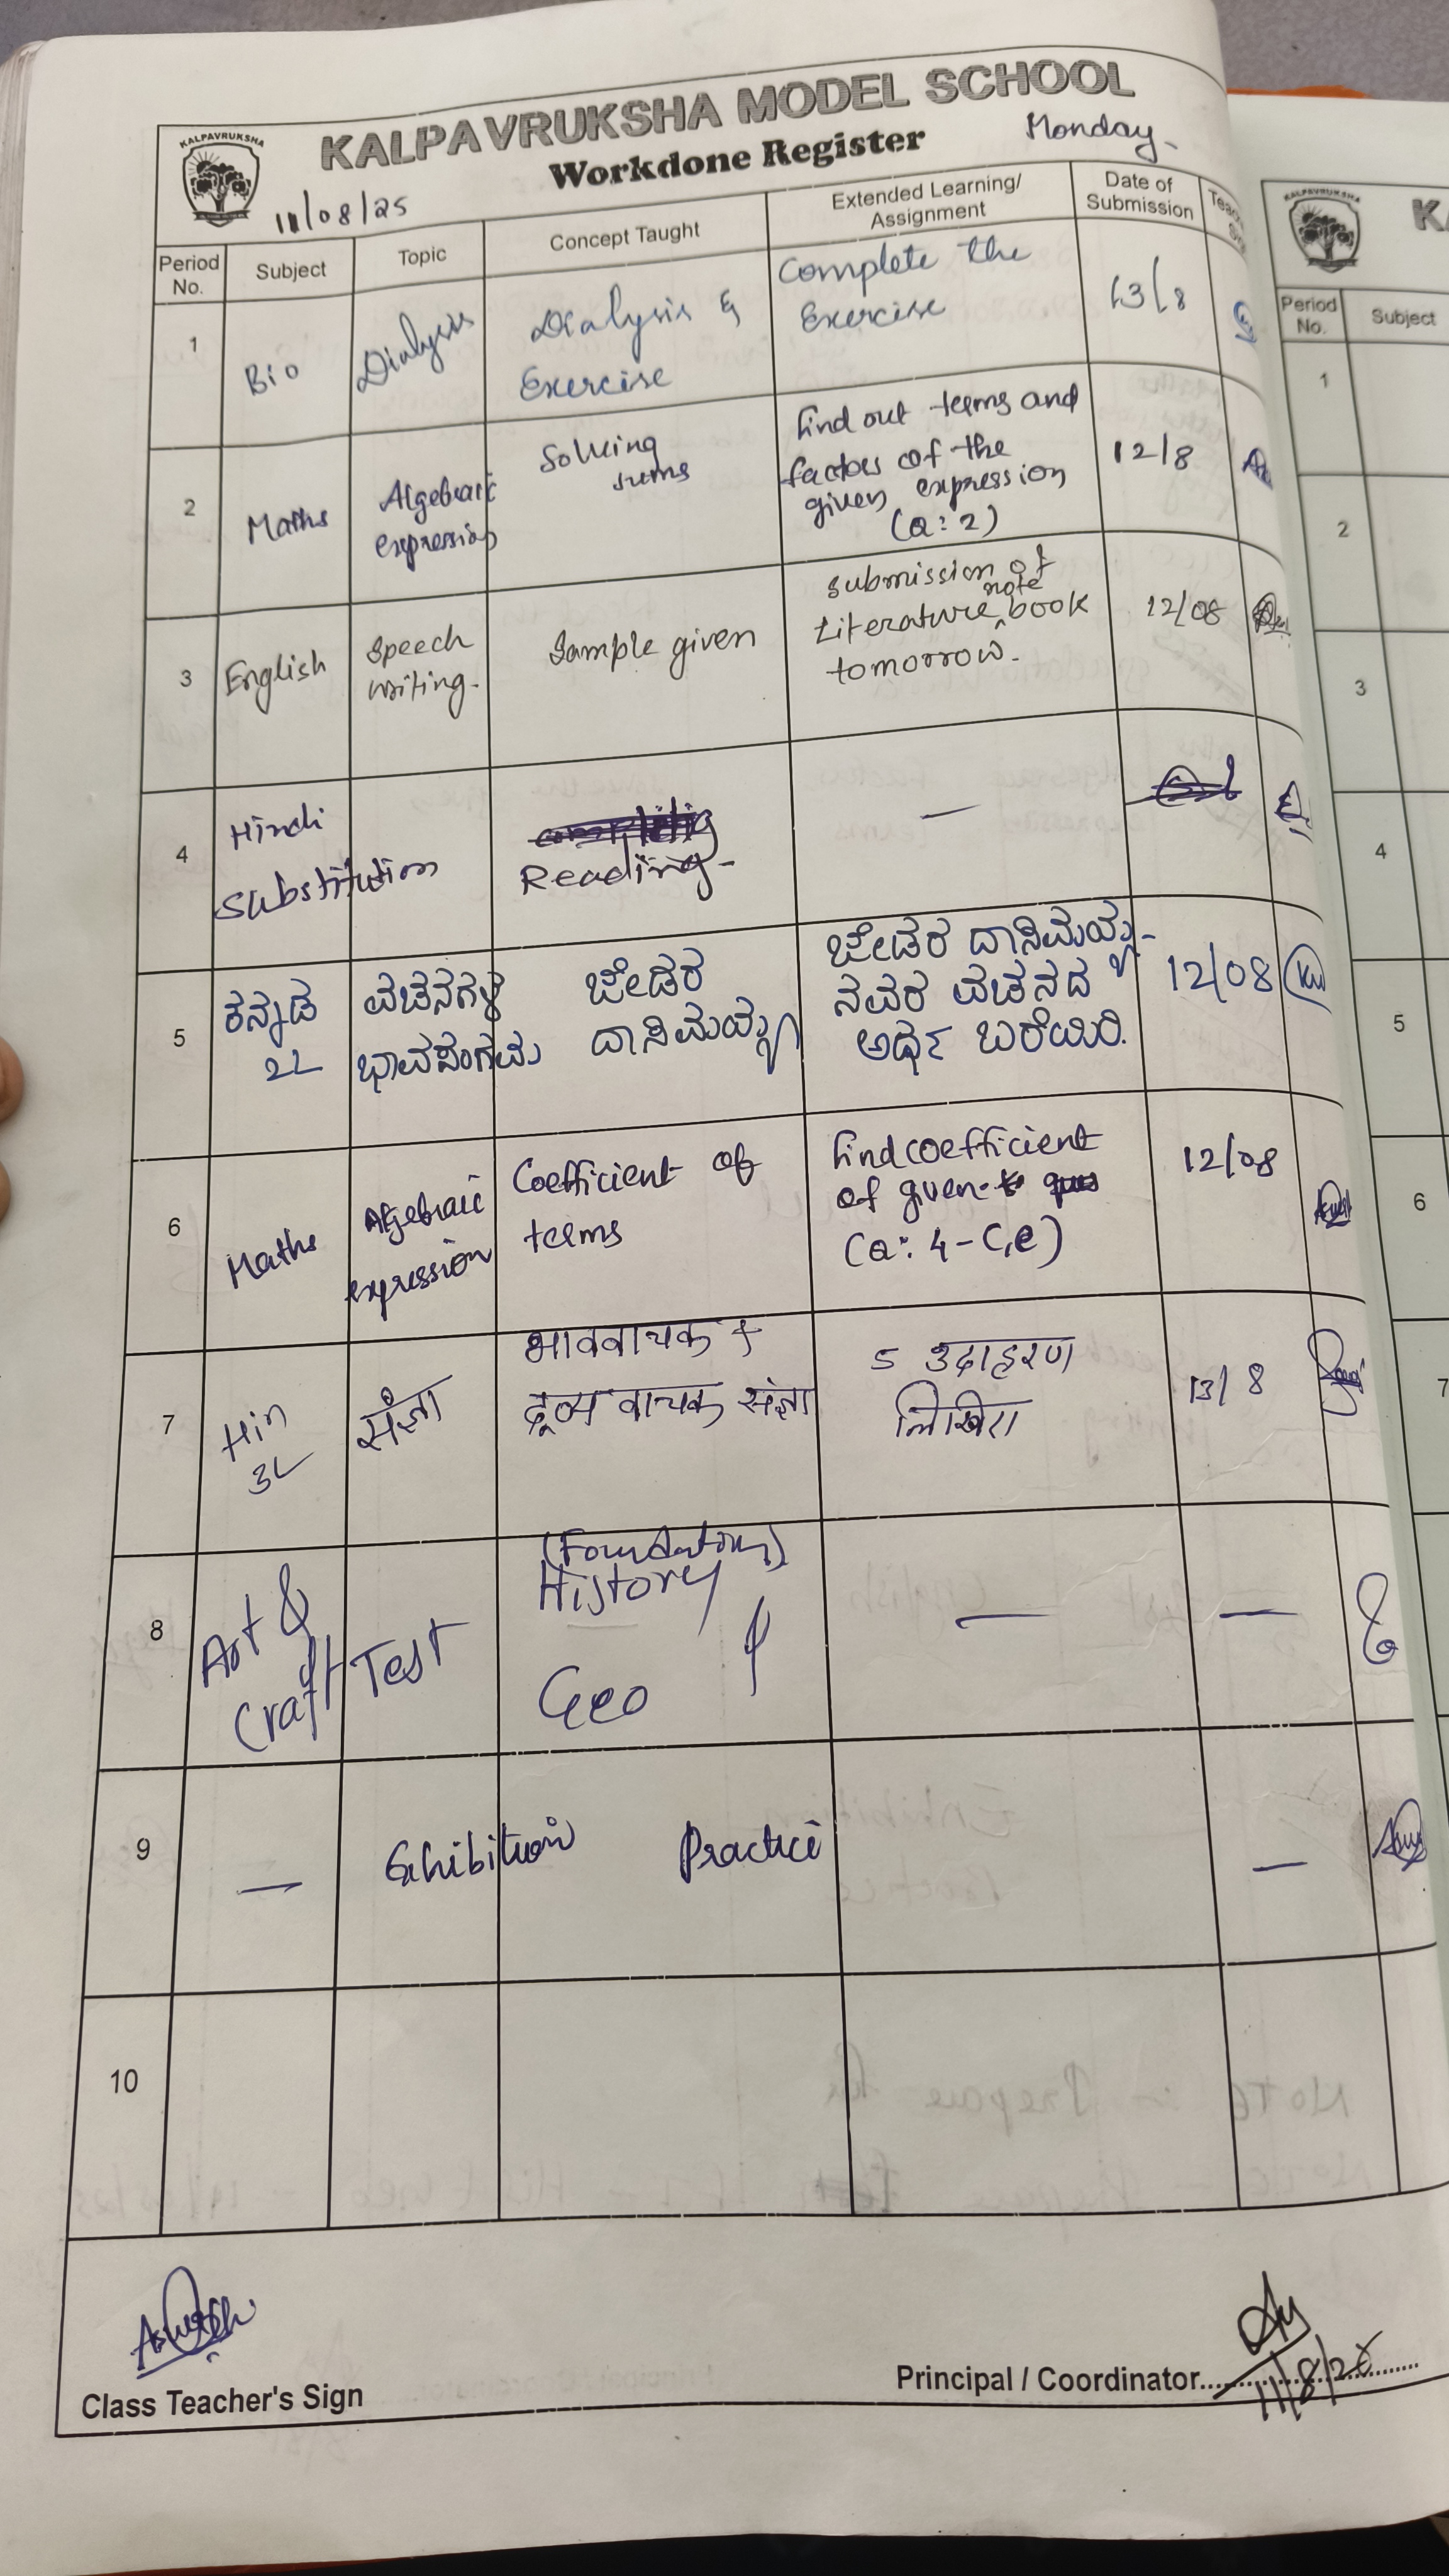 KALPAVRUKSHA MODEL SCHOOL
KALPAVRUKSHA
Workdone Register
Monday
11/08/25
Period No.
Subject
Topic
Concept Taught
Extended Learning/ Assignment
Date of Submission
1
Bio
Dialysis
Dialysis &
Exercise
Complete the
Exercise
13/8
2
Maths
Algebraic
expression
Solving
sums
find out terms and
factors of the
given expression
(Q:2)
12/8
3
English
Speech
writing.
Sample given
submission of
Literature note book
tomorrow.
12/08
4
Hindi
Substitution
Reading
—
5
ಕನ್ನಡ
2L
ವಚನಗಳ
ಜೇಡರ
ದಾಸಿಮಯ್ಯ
ಜೇಡರ ದಾಸಿಮಯ್ಯ-
ನವರ ವಚನದ
ಅರ್ಥ ಬರೆಯಿರಿ.
12/08
6
Maths
Algebraic
expression
Coefficient of
terms
find coefficient
of given
(Q: 4-C,e)
12/08
7
Hin
3L
संज्ञा
भाववाचक +
द्रव्य वाचक संज्ञा
5 उदाहरण
लिखिए
13/8
8
Art &
Craft
Test
(Foundation)
History
&
Geo
—
—
9
—
Exhibition Practice
—
10
Class Teacher's Sign
Principal / Coordinator
11/8/25
KALPAVRUKSHA
Period No.
Subject
1
2
3
4
5
6
7